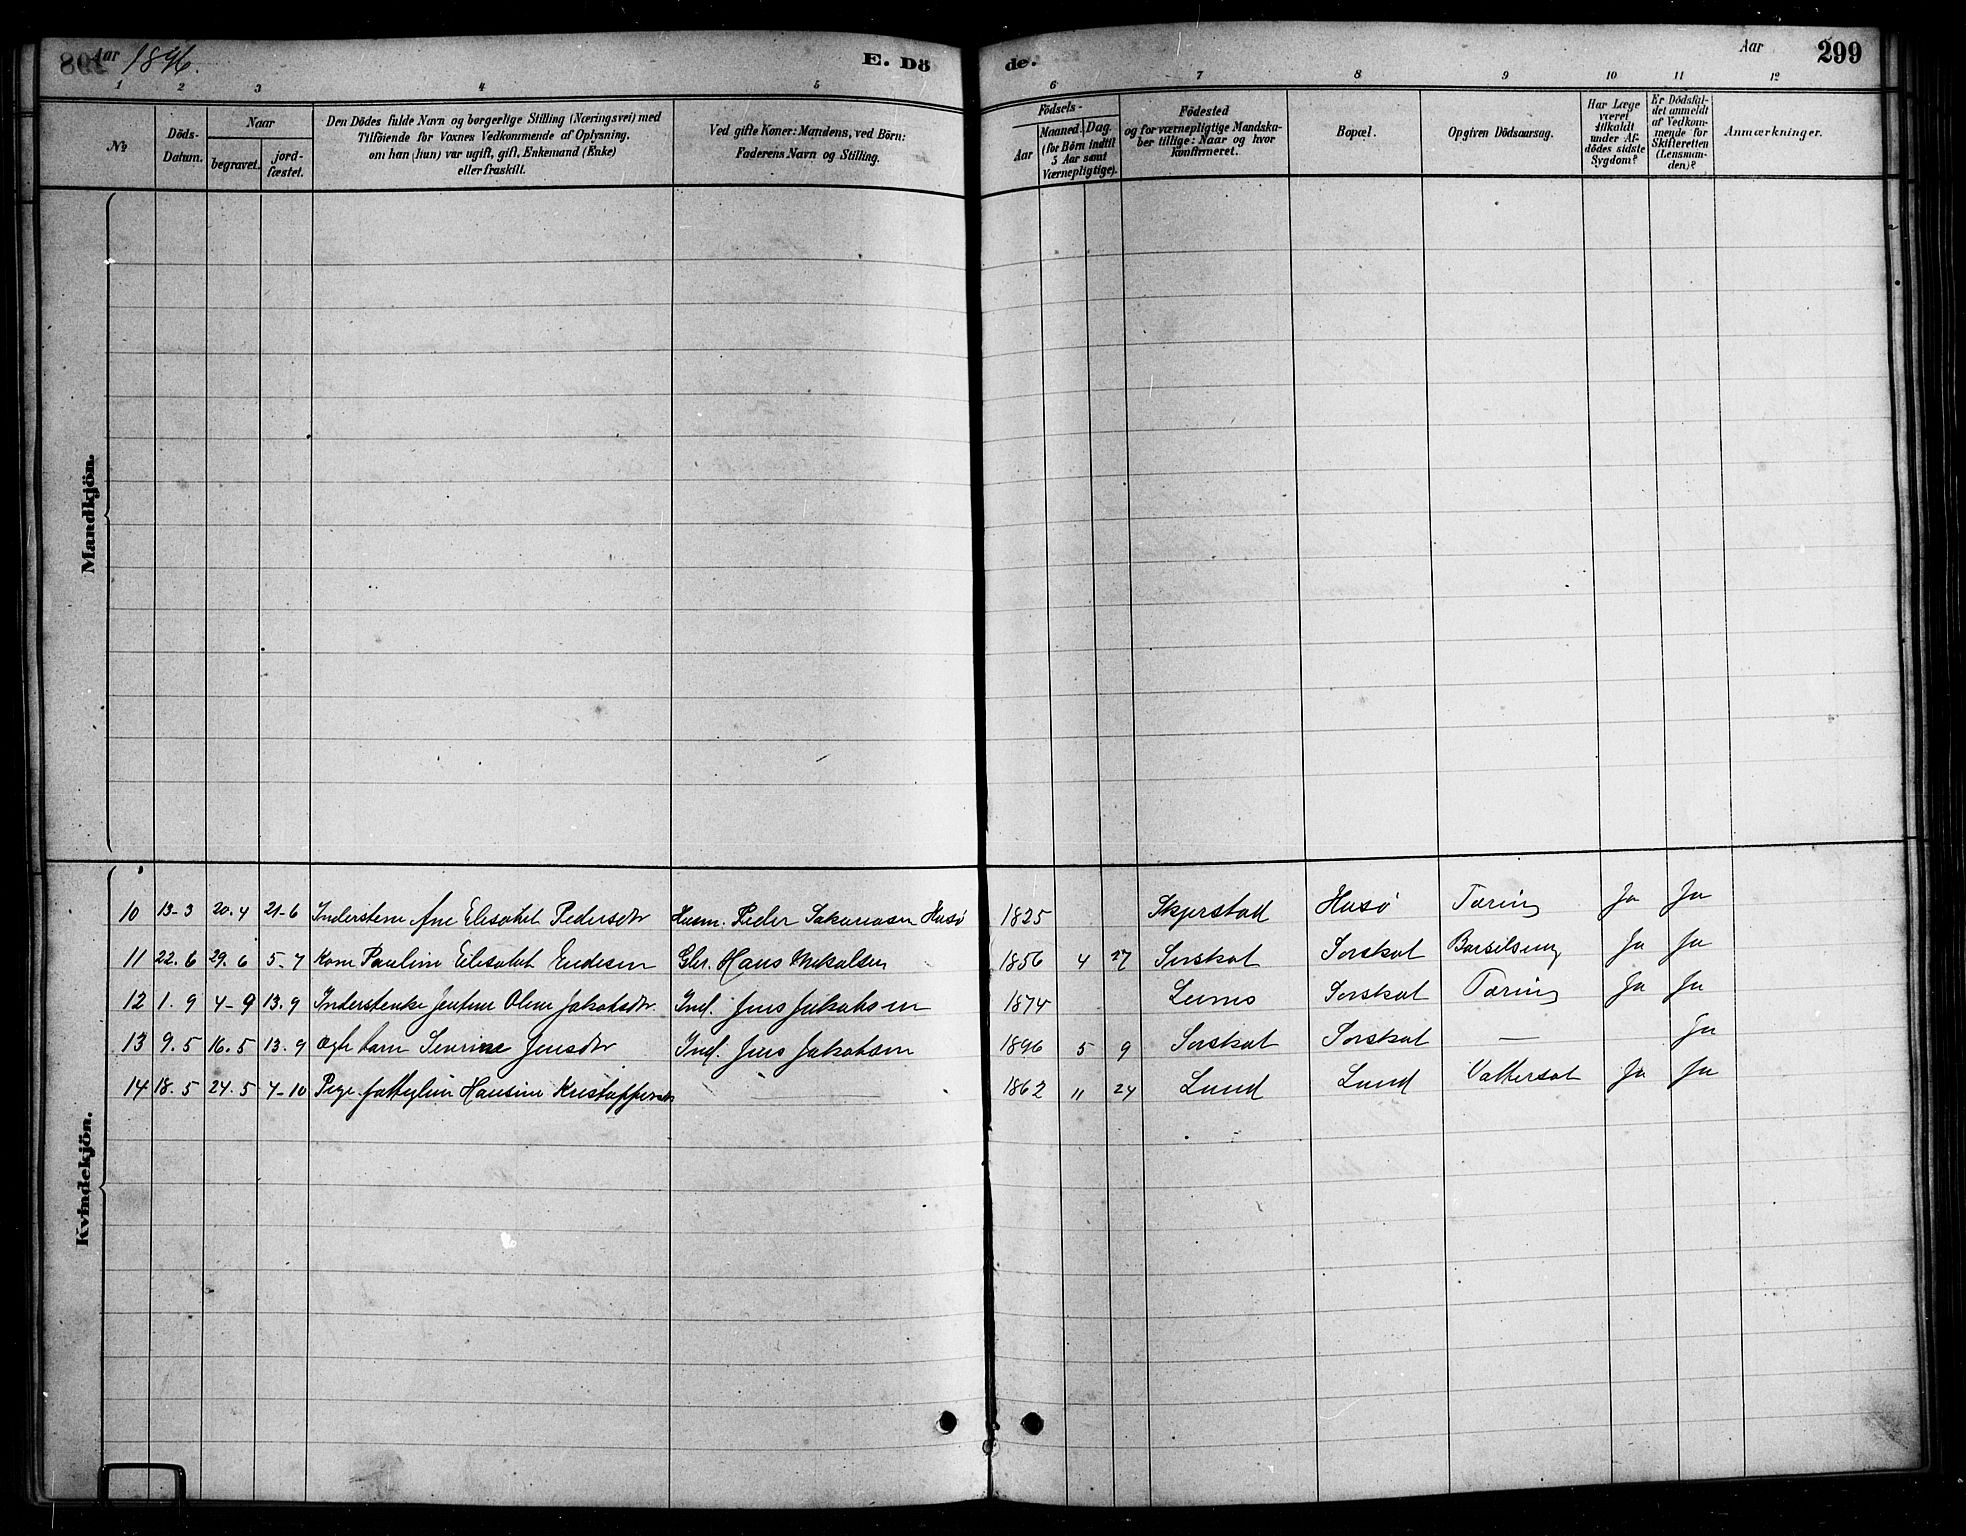 Aar 1896.
E. Dö
de.
Aar
299
1 2 3 4 5 6 7 8 9 10 11 12
No
Döds-Datum.
Naar
begravet.
jordfæstet.
Den Dödes fulde Navn og borgerlige Stilling (Næringsvei) med
Tilföiende for Voxnes Vedkommende af Oplysning,
om han (hun) var ugift, gift, Enkemand (Enke)
eller fraskilt.
Ved gifte Koner: Mandens, ved Börn:
Faderens Navn og Stilling.
Födsels-
Aar
Maaned. Dag.
(for Börn indtil
5 Aar samt
Værnepligtige).
Födested
og for værnepligtige Mandska-
ber tillige: Naar og hvor
Konfirmeret.
Bopæl.
Opgiven Dödsaarsag.
Har Læge
været
tilkaldt
under Af-
dödes sidste
Sygdom?
Er Dödsfal-
det anmeldt
af Vedkom-
mende for
Skifteretten
(Lensman-
den)?
Anmærkninger.
Mandkjön.
Kvindekjön.
10 13-3 20.4 21-6 Inderstene Ane Elisabet Pedersdtr Husm. Peder Sakariasen Husö 1825 Skjerstad Husö Tæring Ja Ja
11 22.6 29.6 5-7 Kone Pauline Elisabet Endesen Gbr. Hans Mikalsen 1856 4 27 Sørskot Sørskot Barselseng Ja Ja
12 1.9 4-9 13.9 Jentine Oline Jakobsdtr. Ind. Jens Jakobsen 1874 Leines Sørskot Tæring Ja Ja
13 9.5 16.5 13.9 Ægte barn Sevrine Jensdtr Ind. Jens Jakobsen 1896 5 9 Sørskot Sørskot — Ja
14 18.5 24.5 4-10 Pige fattiglem Hansine Kristoffersdtr — 1862 11 24 Lund Lund Vattersot Ja Ja